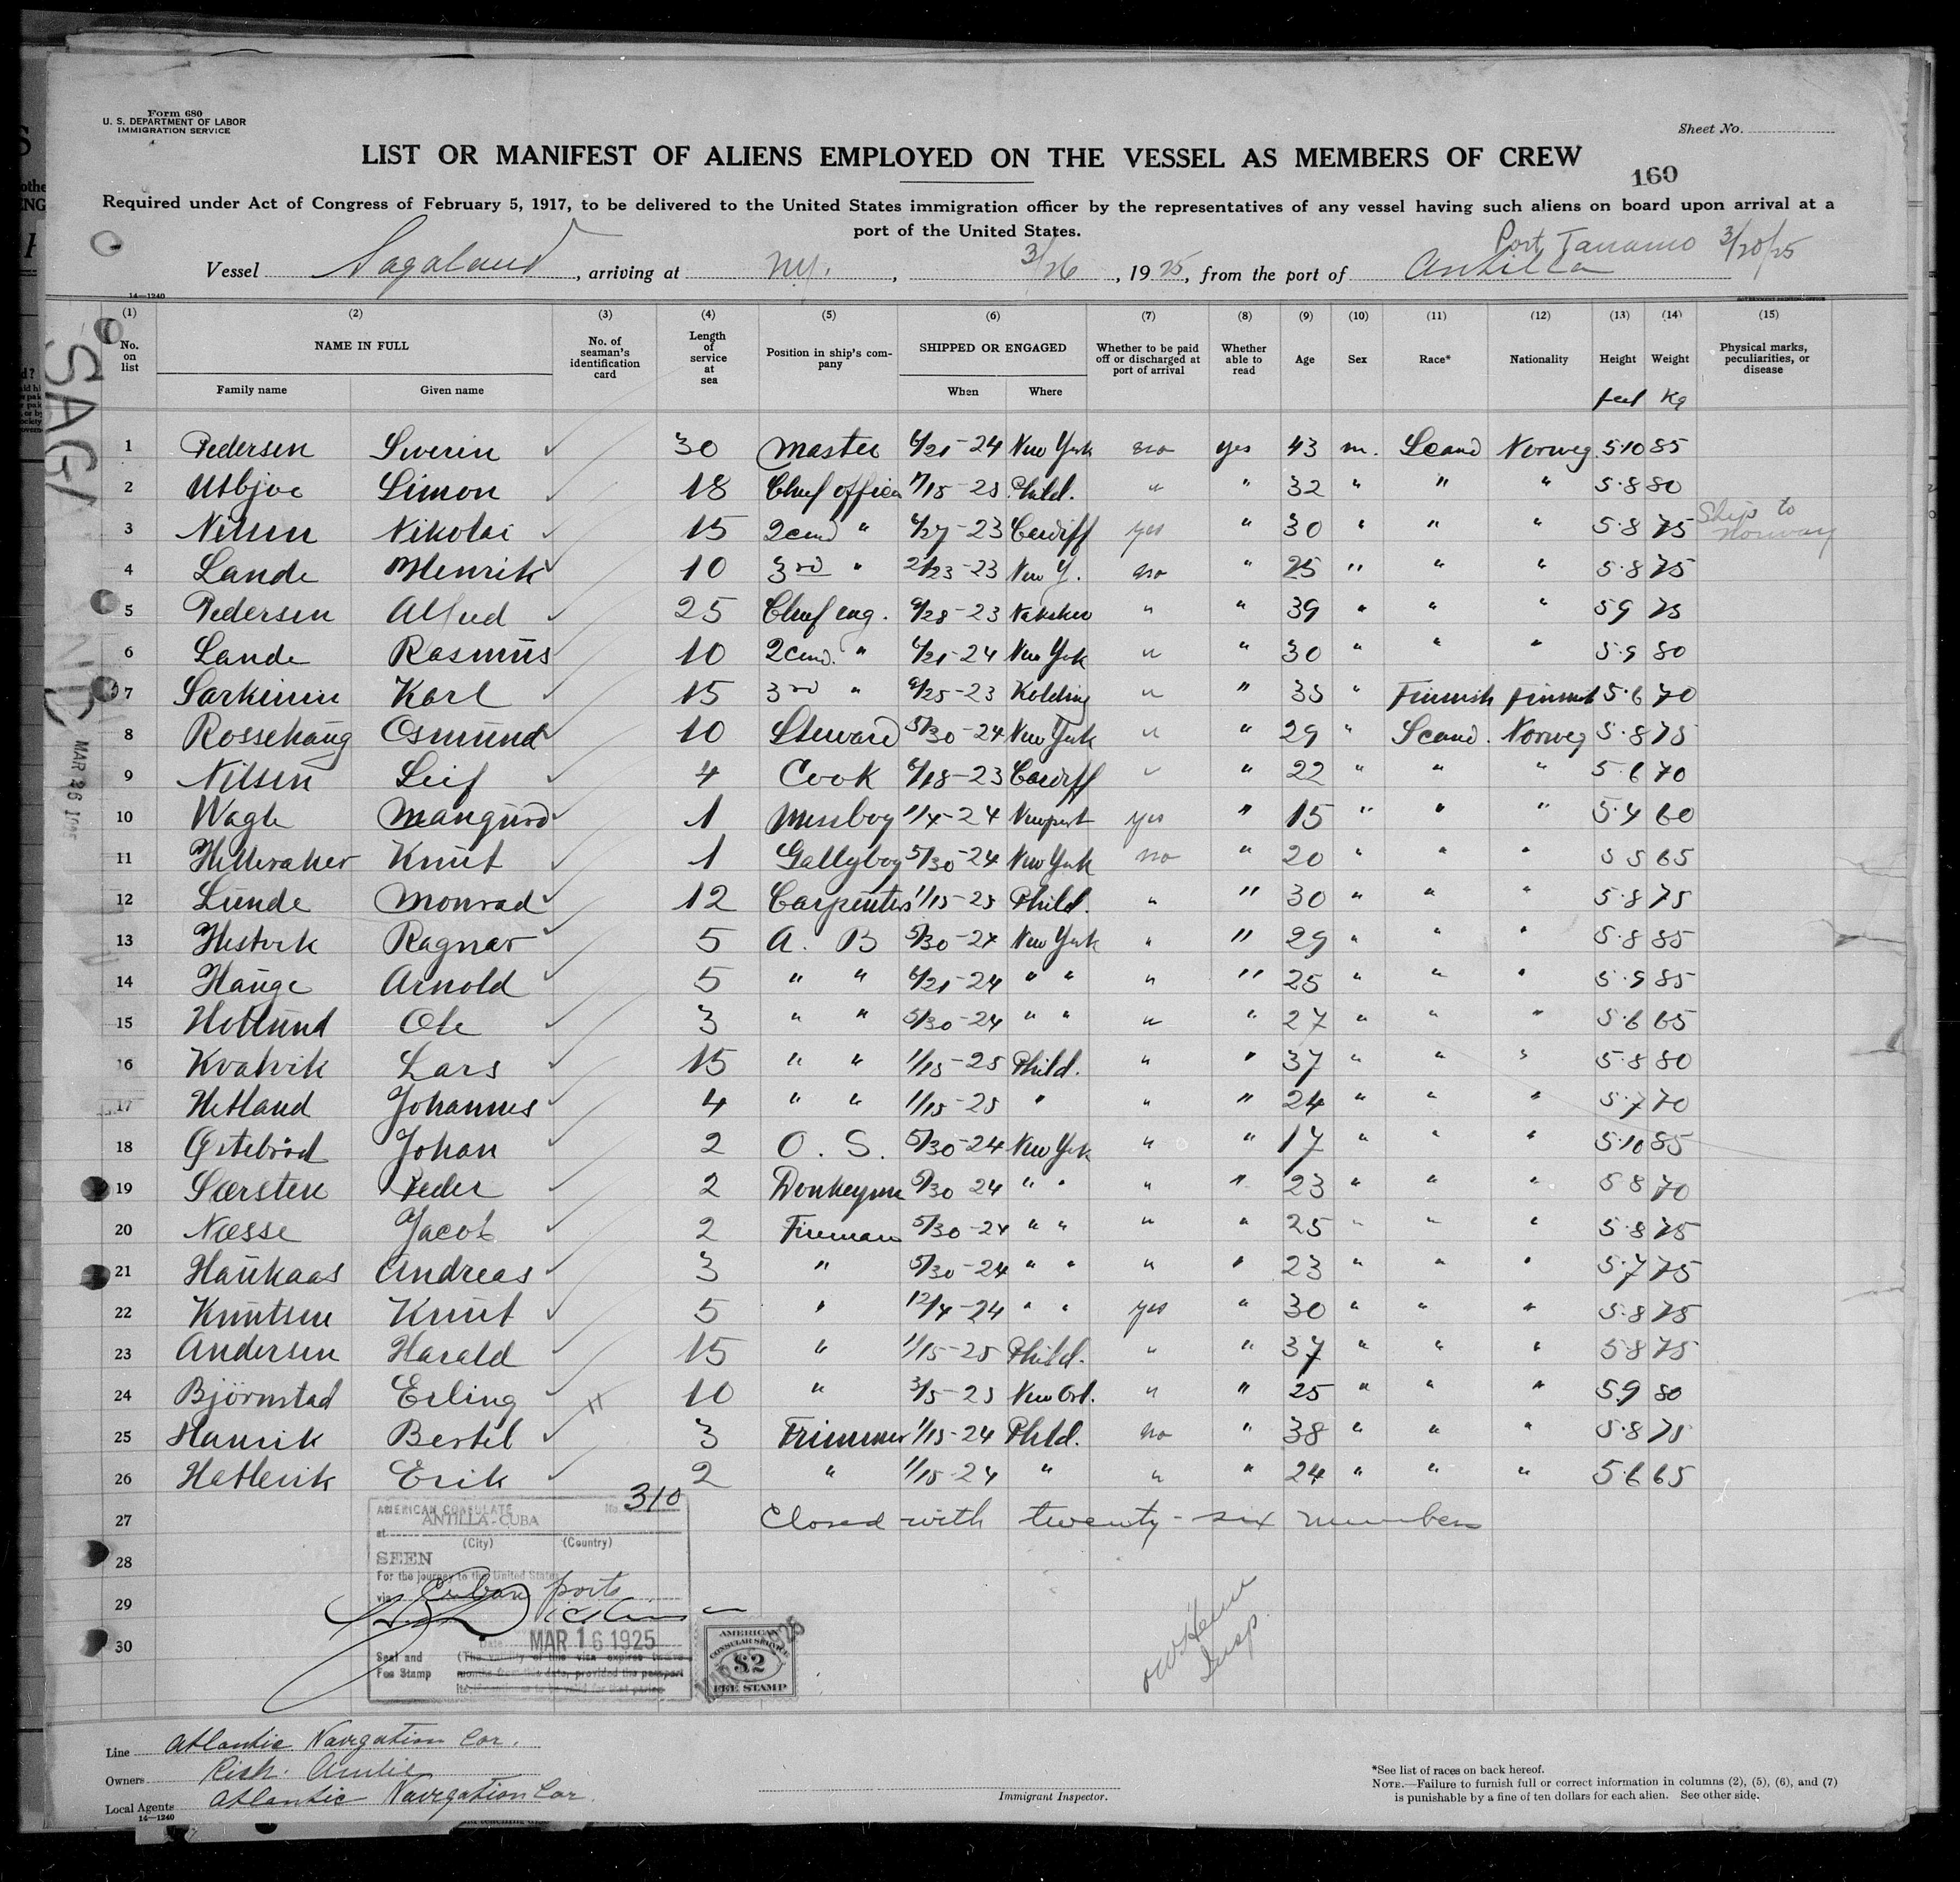 Form 680
U. S. DEPARTMENT OF LABOR
IMMIGRATION SERVICE
Sheet No.
LIST OR MANIFEST OF ALIENS EMPLOYED ON THE VESSEL AS MEMBERS OF CREW
160
Required under Act of Congress of February 5, 1917, to be delivered to the United States immigration officer by the representatives of any vessel having such aliens on board upon arrival at a
port of the United States.
Port Tanamo 3/20/25
Vessel Sagaland, arriving at N.Y., 3/26, 1925, from the port of Antilla
14—1240
(1) (2) (3) (4) (5) (6) (7) (8) (9) (10) (11) (12) (13) (14) (15)
No. on list NAME IN FULL Family name Given name No. of seaman's identification card Length of service at sea Position in ship's company SHIPPED OR ENGAGED When Where Whether to be paid off or discharged at port of arrival Whether able to read Age Sex Race* Nationality Height Weight Physical marks, peculiarities, or disease
feet Kg
1 Pedersen Severin 30 Master 6/21-24 New York no yes 43 m. Scand Norweg. 5·10 85
2 Utbjoe Simon 18 Chief officer 1/15-25 Phild. " " 32 " " " 5·8 80
3 Nilsen Nikolai 15 2cend " 6/27-23 Cardiff yes " 30 " " " 5·8 75 Ships to Norway
4 Lande Henrik 10 3rd " 2/23-23 New Y. no " 25 " " " 5·8 75
5 Pedersen Alfred 25 Chief eng. 9/28-23 " " 39 " " " 5 9 75
6 Lande Rasmus 10 2cend. " 6/21-24 New York " " 30 " " " 5·9 80
7 Sarkinen Karl 15 3rd " 9/25-23 Kolding " " 35 " Finnish Finnish 5·6 70
8 Rossehaug Osmund 10 Steward 5/30-24 New York " " 29 " Scand. Norweg 5·8 75
9 Nilsen Leif 4 Cook 6/18-23 Cardiff " " 22 " " " 5·6 70
10 Wagle Mangurd 1 Messboy 11/4-24 Newport yes " 15 " " " 5·4 60
11 Helleraker Knut 1 Galleyboy 5/30-24 New York no " 20 " " " 5 5 65
12 Lunde Monrad 12 Carpenter 1/15-25 Phild. " " 30 " " " 5·8 75
13 Hestvik Ragnar 5 A. B 5/30-24 New York " " 29 " " " 5·8 85
14 Hauge Arnold 5 " " 6/21-24 " " " " 25 " " " 5·9 85
15 Hollund Ole 3 " " 5/30-24 " " " " 27 " " " 5·6 65
16 Kvalvik Lars 15 " " 1/15-25 Phild. " " 37 " " " 5·8 80
17 Hetland Johannes 4 " " 1/15-25 " " " 24 " " " 5·7 70
18 Østebröd Johan 2 O. S. 5/30-24 New York " " 17 " " " 5·10 85
19 Særsten Peder 2 Donkeyman 5/30 24 " " " " 23 " " " 5 8 70
20 Næsse Jacob 2 Fireman 5/30-24 " " " " 25 " " " 5·8 75
21 Haukaas Andreas 3 " 5/30-24 " " " " 23 " " " 5·7 75
22 Knutsen Knut 5 " 12/4-24 " " yes " 30 " " " 5·8 75
23 Andersen Harald 15 " 1/15-25 Phild. " " 37 " " " 5·8 75
24 Björnstad Erling 10 " 3/5-25 New Orl. " " 25 " " " 5.9 80
25 Hamrik Bertel 3 Trimmer 1/15-24 Phld. no " 38 " " " 5·8 75
26 Hatlevik Erik 2 " 1/15-24 " " " 24 " " " 5·6 65
27 Closed with twenty-six members
28
29
30
AMERICAN CONSULATE No. 310
at ANTILLA-CUBA
(City) (Country)
SEEN
For the journey to the United States
via Cuban ports
Date MAR 16 1925
Seal and Fee Stamp
(The validity of this visa expires twelve
months from this date, provided the passport
AMERICAN CONSULAR SERVICE
$2
FEE STAMP
Insp.
SAGALAND
MAR 26 1925
Line Atlantic Navigation Cor.
Owners Rich. Amlie
Local Agents Atlantic Navigation Cor.
14—1240
Immigrant Inspector.
*See list of races on back hereof.
NOTE.—Failure to furnish full or correct information in columns (2), (5), (6), and (7)
is punishable by a fine of ten dollars for each alien. See other side.